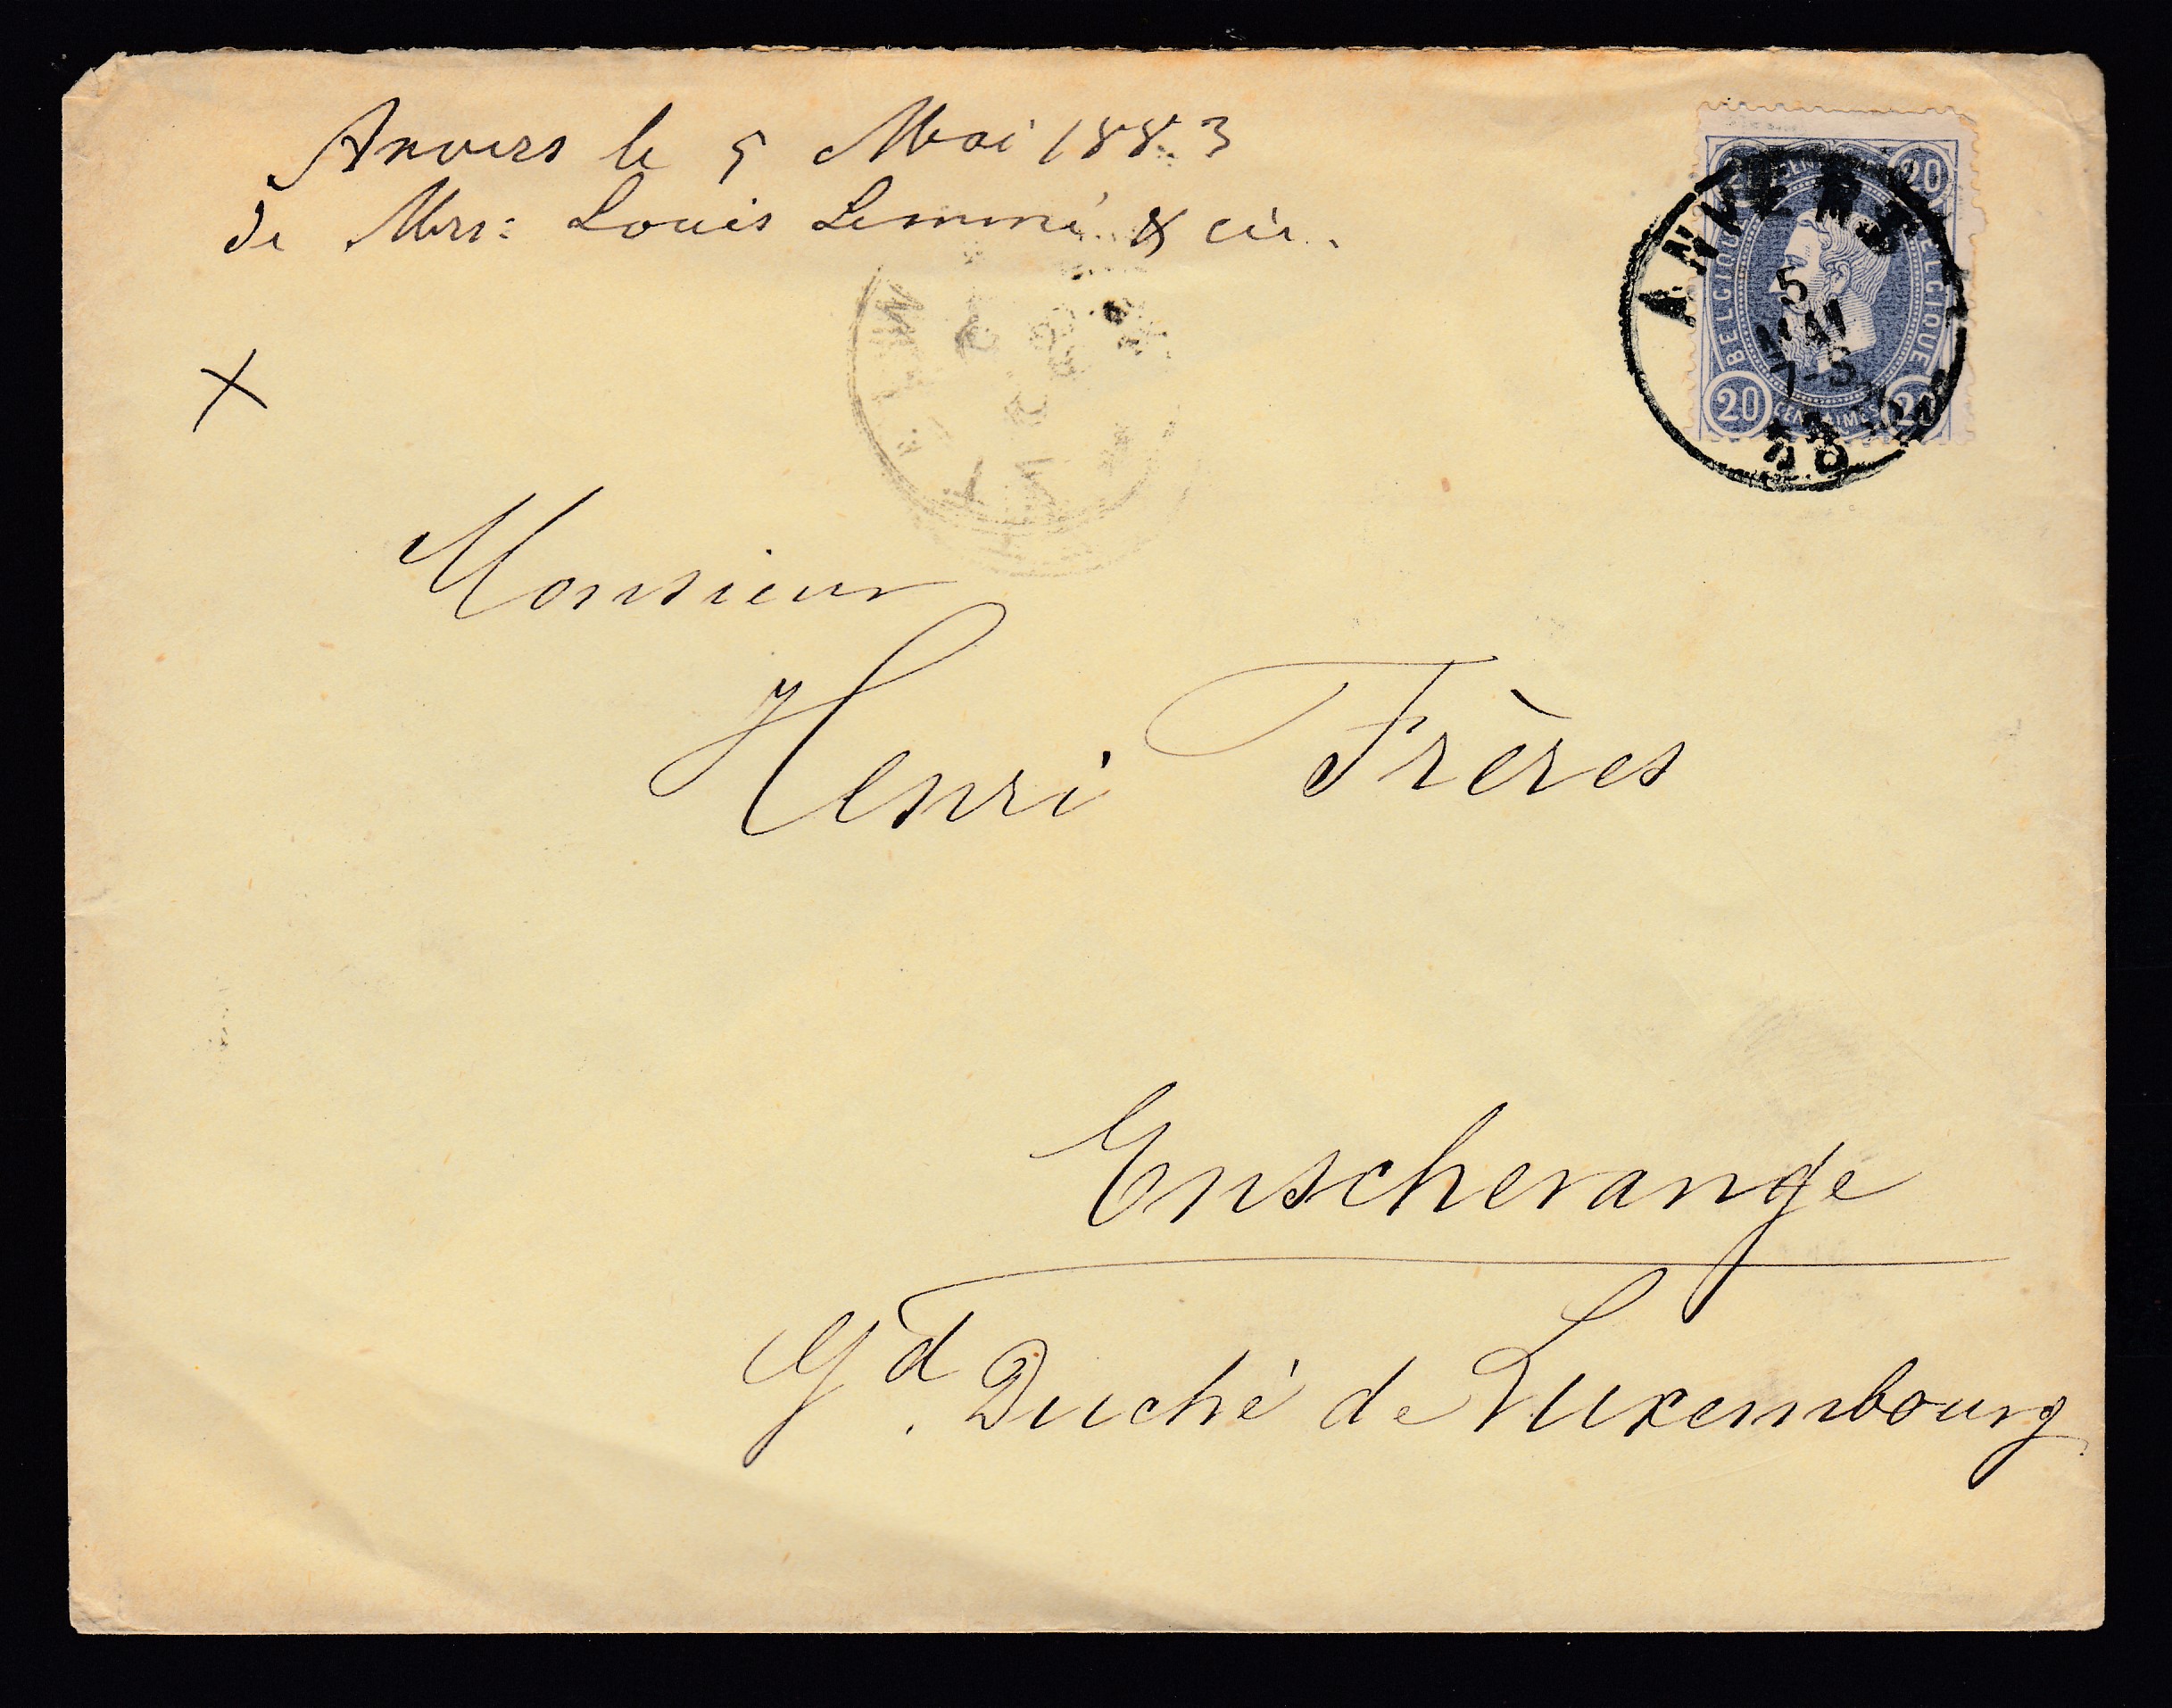 Anvers le 5 Mai 1883
de Mrs: Louis Lemmé & cie.
BELGIQUE BELGIQUE
20 20
20 CENTIMES 20
ANVERS
5
MAI
7-S
Monsieur
Henri Frères
Enscherange
Gd. Duché de Luxembourg